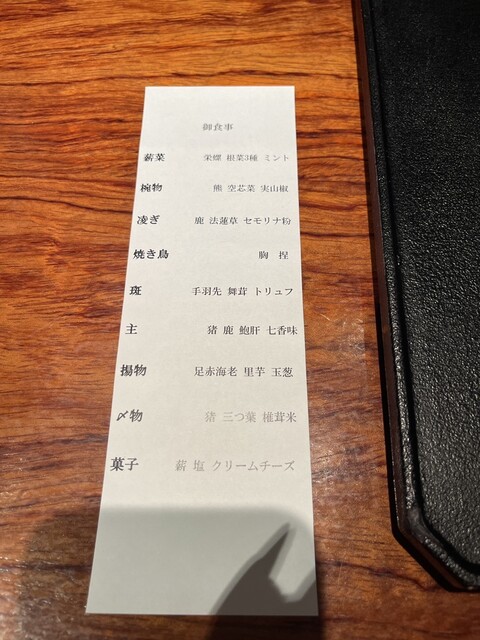 御食事
薪菜 栄螺 根菜3種 ミント
椀物 熊 空芯菜 実山椒
凌ぎ 鹿 法蓮草 セモリナ粉
焼き鳥 胸 捏
斑 手羽先 舞茸 トリュフ
主 猪 鹿 鮑肝 七香味
揚物 足赤海老 里芋 玉葱
〆物 猪 三つ葉 椎茸米
菓子 薪 塩 クリームチーズ